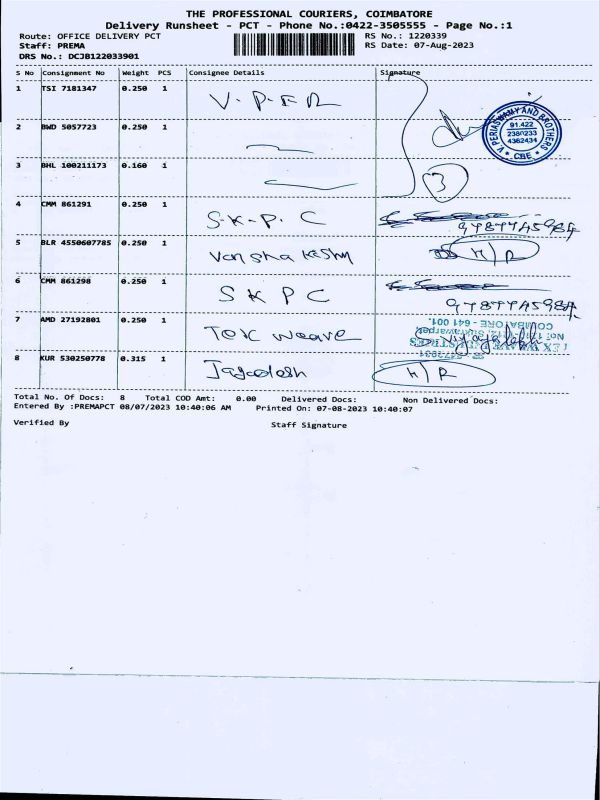 THE PROFESSIONAL COURIERS, COIMBATORE
Delivery Runsheet - PCT - Phone No.:0422-3505555 - Page No.:1
Route: OFFICE DELIVERY PCT RS No.: 1220339
Staff: PREMA RS Date: 07-Aug-2023
DRS No.: DCJB122033901
S No Consignment No Weight PCS Consignee Details Signature
1 TSI 7181347 0.250 1 V.P.E.R
V PERIASWAMY AND BROTHERS
91.422
2380233
4362434
* CBE *
2 BWD 5057723 0.250 1
3 BHL 100211173 0.160 1 3
4 CMM 861291 0.250 1 S.K.P.C
5 BLR 4550607785 0.250 1 H/R
6 CMM 861298 0.250 1 SKPC
7 AMD 27192801 0.250 1 Tex weave
COIMBATORE - 641 001.
8 KUR 530250778 0.315 1 Jagadesh H/R
Total No. Of Docs: 8 Total COD Amt: 0.00 Delivered Docs: Non Delivered Docs:
Entered By :PREMAPCT 08/07/2023 10:40:06 AM Printed On: 07-08-2023 10:40:07
Verified By Staff Signature